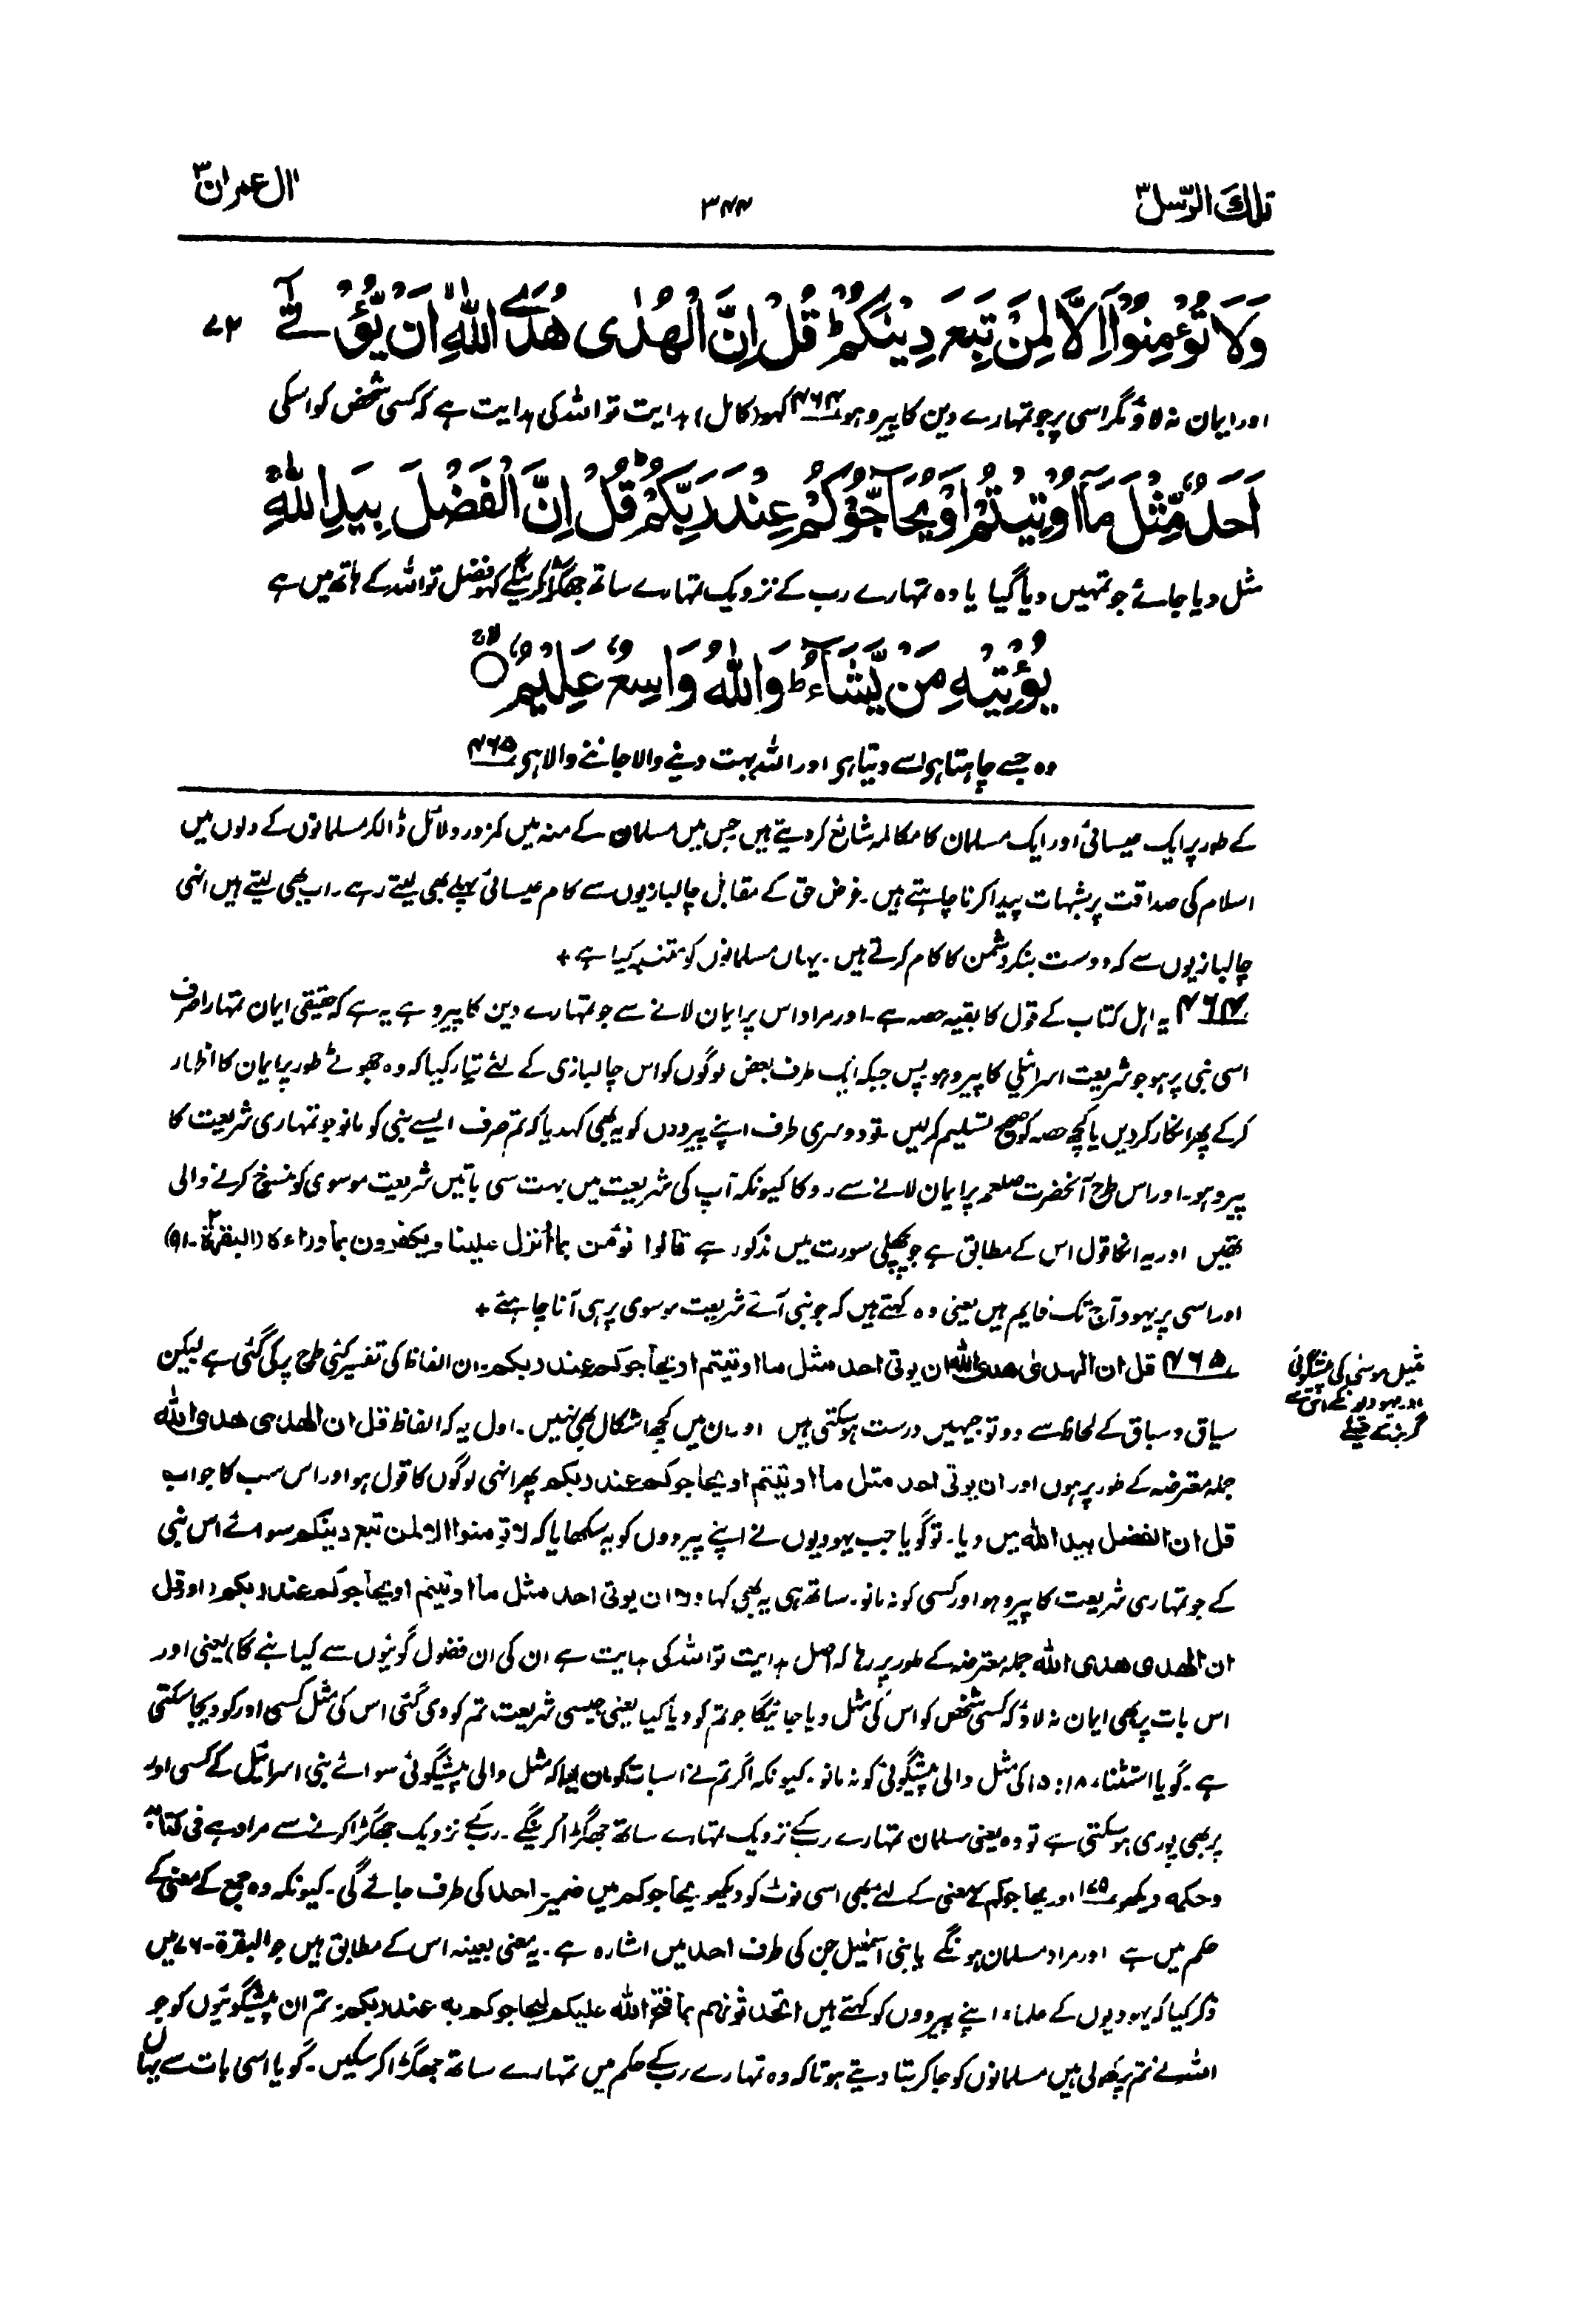 تلك الرّسل ٣
٣٤٤
اٰل عمران ٣
وَلَا تُؤْمِنُوْٓا اِلَّا لِمَنْ تَبِعَ دِيْنَكُمْ ؕ قُلْ اِنَّ الْهُدٰى هُدَى اللّٰهِ ۙ اَنْ يُّؤْتٰٓى
٧٢
اور ایمان نہ لاؤ مگر اسی پر جو تمہارے دین کا پیرو ہو ۴۶۴ کہو (کامل) ہدایت تو اللہ کی ہدایت ہے کہ کسی شخص کو اسکی
اَحَدٌ مِّثْلَ مَآ اُوْتِيْتُمْ اَوْ يُحَآجُّوْكُمْ عِنْدَ رَبِّكُمْ ؕ قُلْ اِنَّ الْفَضْلَ بِيَدِ اللّٰهِ ۚ
مثل دیا جائے جو تمہیں دیا گیا یا وہ تمہارے رب کے نزدیک تمہارے ساتھ جھگڑا کرینگے کہو فضل تو اللہ کے ہاتھ میں ہے
يُؤْتِيْهِ مَنْ يَّشَآءُ ؕ وَاللّٰهُ وَاسِعٌ عَلِيْمٌ ۙ○
وہ جسے چاہتا ہی اسے دیتا ہی اور اللہ بہت دینے والا جاننے والا ہی ۴۶۵
کے طور پر ایک عیسائی اور ایک مسلمان کا مکالمہ شائع کر دیتے ہیں جس میں مسلمان کے منہ میں کمزور دلائل ڈالکر مسلمانوں کے دلوں میں
اسلام کی صداقت پر شبہات پیدا کرنا چاہتے ہیں۔ غرض حق کے مقابل چالبازیوں سے کام عیسائی پہلے بھی لیتے رہے۔ اب بھی لیتے ہیں انہی
چالبازیوں سے کہ دوست بنکر دشمن کا کام کرتے ہیں۔ یہاں مسلمانوں کو متنبہ کیا ہے +
۴۶۴ یہ اہل کتاب کے قول کا بقیہ حصہ ہے۔ اور مراد اس پر ایمان لانے سے جو تمہارے دین کا پیرو ہے یہ ہے کہ حقیقی ایمان تمہارا صرف
اسی نبی پر ہو جو شریعت اسرائیلی کا پیرو ہو پس جبکہ ایک طرف بعض لوگوں کو اس چالبازی کے لئے تیار کیا کہ وہ جھوٹے طور پر ایمان کا اظہار
کر کے پھر انکار کر دیں یا کچھ حصہ کو صحیح تسلیم کر لیں۔ تو دوسری طرف اپنے پیرووں کو یہ بھی کہدیا کہ تم صرف ایسے نبی کو مانو جو تمہاری شریعت کا
پیرو ہو۔ اور اس طرح آنحضرت صلعم پر ایمان لانے سے روکا کیونکہ آپ کی شریعت میں بہت سی باتیں شریعت موسوی کو منسوخ کرنے والی
تھیں اور یہ انکا قول اس کے مطابق ہے جو پچھلی سورت میں مذکور ہے قالوا نؤمن بما أنزل علينا ويكفرون بما وراءه (البقرة ٢-٩١)
اور اسی پر یہود آج تک قایم ہیں یعنی وہ کہتے ہیں کہ جو نبی آئے شریعت موسوی پر ہی آنا چاہئے +
۴۶۵ قل ان الهدى هدى الله ان يوتى احد مثل ما اوتيتم او يحاجوكم عند ربكم۔ ان الفاظ کی تفسیر کئی طرح پر کی گئی ہے لیکن
مثیل موسٰی کی پیشگوئی
اور یہودیوں کے اس سے
گریز کے حیلے
سیاق و سباق کے لحاظ سے دو توجیہیں درست ہو سکتی ہیں اور ان میں کچھ اشکال بھی نہیں۔ اول یہ کہ الفاظ قل ان الهدى هدى الله
جملہ معترضہ کے طور پر ہوں اور ان يوتى احد مثل ما اوتيتم او يحاجوكم عند ربكم پھر انہی لوگوں کا قول ہو اور اس سب کا جواب
قل ان الفضل بيد الله میں دیا۔ تو گویا جب یہودیوں نے اپنے پیرووں کو یہ سکھایا کہ لا تؤمنوا الا لمن تبع دينكم سوائے اس نبی
کے جو تمہاری شریعت کا پیرو ہو اور کسی کو نہ مانو۔ ساتھ ہی یہ بھی کہا ان يوتى احد مثل ما اوتيتم او يحاجوكم عند ربكم (اور قل
ان الهدى هدى الله جملہ معترضہ کے طور پر رہا کہ اصل ہدایت تو اللہ کی ہدایت ہے ان کی ان فضول گوئیوں سے کیا بنے گا) یعنی اور
اس بات پر بھی ایمان نہ لاؤ کہ کسی شخص کو اس کی مثل دیا جائیگا جو تم کو دیا گیا یعنی جیسی شریعت تم کو دی گئی اس کی مثل کسی اور کو دیجا سکتی
ہے۔ گویا استثناء ۱۸: ۱۵ کی مثل والی پیشگوئی کو نہ مانو۔ کیونکہ اگر تم نے اسبات کو مان لیا کہ مثل والی پیشگوئی سوائے بنی اسرائیل کے کسی اور
پر بھی پوری ہو سکتی ہے تو وہ یعنی مسلمان تمہارے رب کے نزدیک تمہارے ساتھ جھگڑا کرینگے۔ رب کے نزدیک جھگڑا کرنے سے مراد ہے فی کتابہ
وحکمہ دیکھو ۱۷۵ اور يحاجوكم کے معنی کے لئے بھی اسی نوٹ کو دیکھو۔ يحاجوكم میں ضمیر احد کی طرف جائے گی۔ کیونکہ وہ جمع کے معنی کے
حکم میں ہے اور مراد مسلمان ہونگے یا بنی اسمٰعیل جن کی طرف احد میں اشارہ ہے۔ یہ معنی بعینہ اس کے مطابق ہیں جو البقرة۔ ۷۶ میں
ذکر کیا کہ یہودیوں کے علماء اپنے پیرووں کو کہتے ہیں اتحدثونهم بما فتح الله عليكم ليحاجوكم به عند ربكم۔ تم ان پیشگوئیوں کو جو
اللہ نے تم پر کھولی ہیں مسلمانوں کو جا کر بتا دیتے ہو تا کہ وہ تمہارے رب کے حکم میں تمہارے ساتھ جھگڑا کر سکیں۔ گویا اسی بات سے یہاں